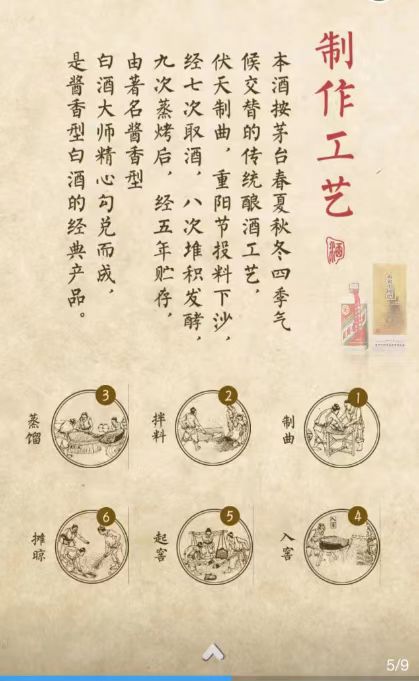 制作工艺
酒
本酒按茅台春夏秋冬四季气
候交替的传统酿酒工艺,
伏天制曲,重阳节投料下沙,
经七次取酒,八次堆积发酵,
九次蒸烤后,经五年贮存,
由著名酱香型
白酒大师精心勾兑而成,
是酱香型白酒的经典产品。
1
制曲
2
拌料
3
蒸馏
4
入窖
入窖
5
起窖
6
摊晾
5/9